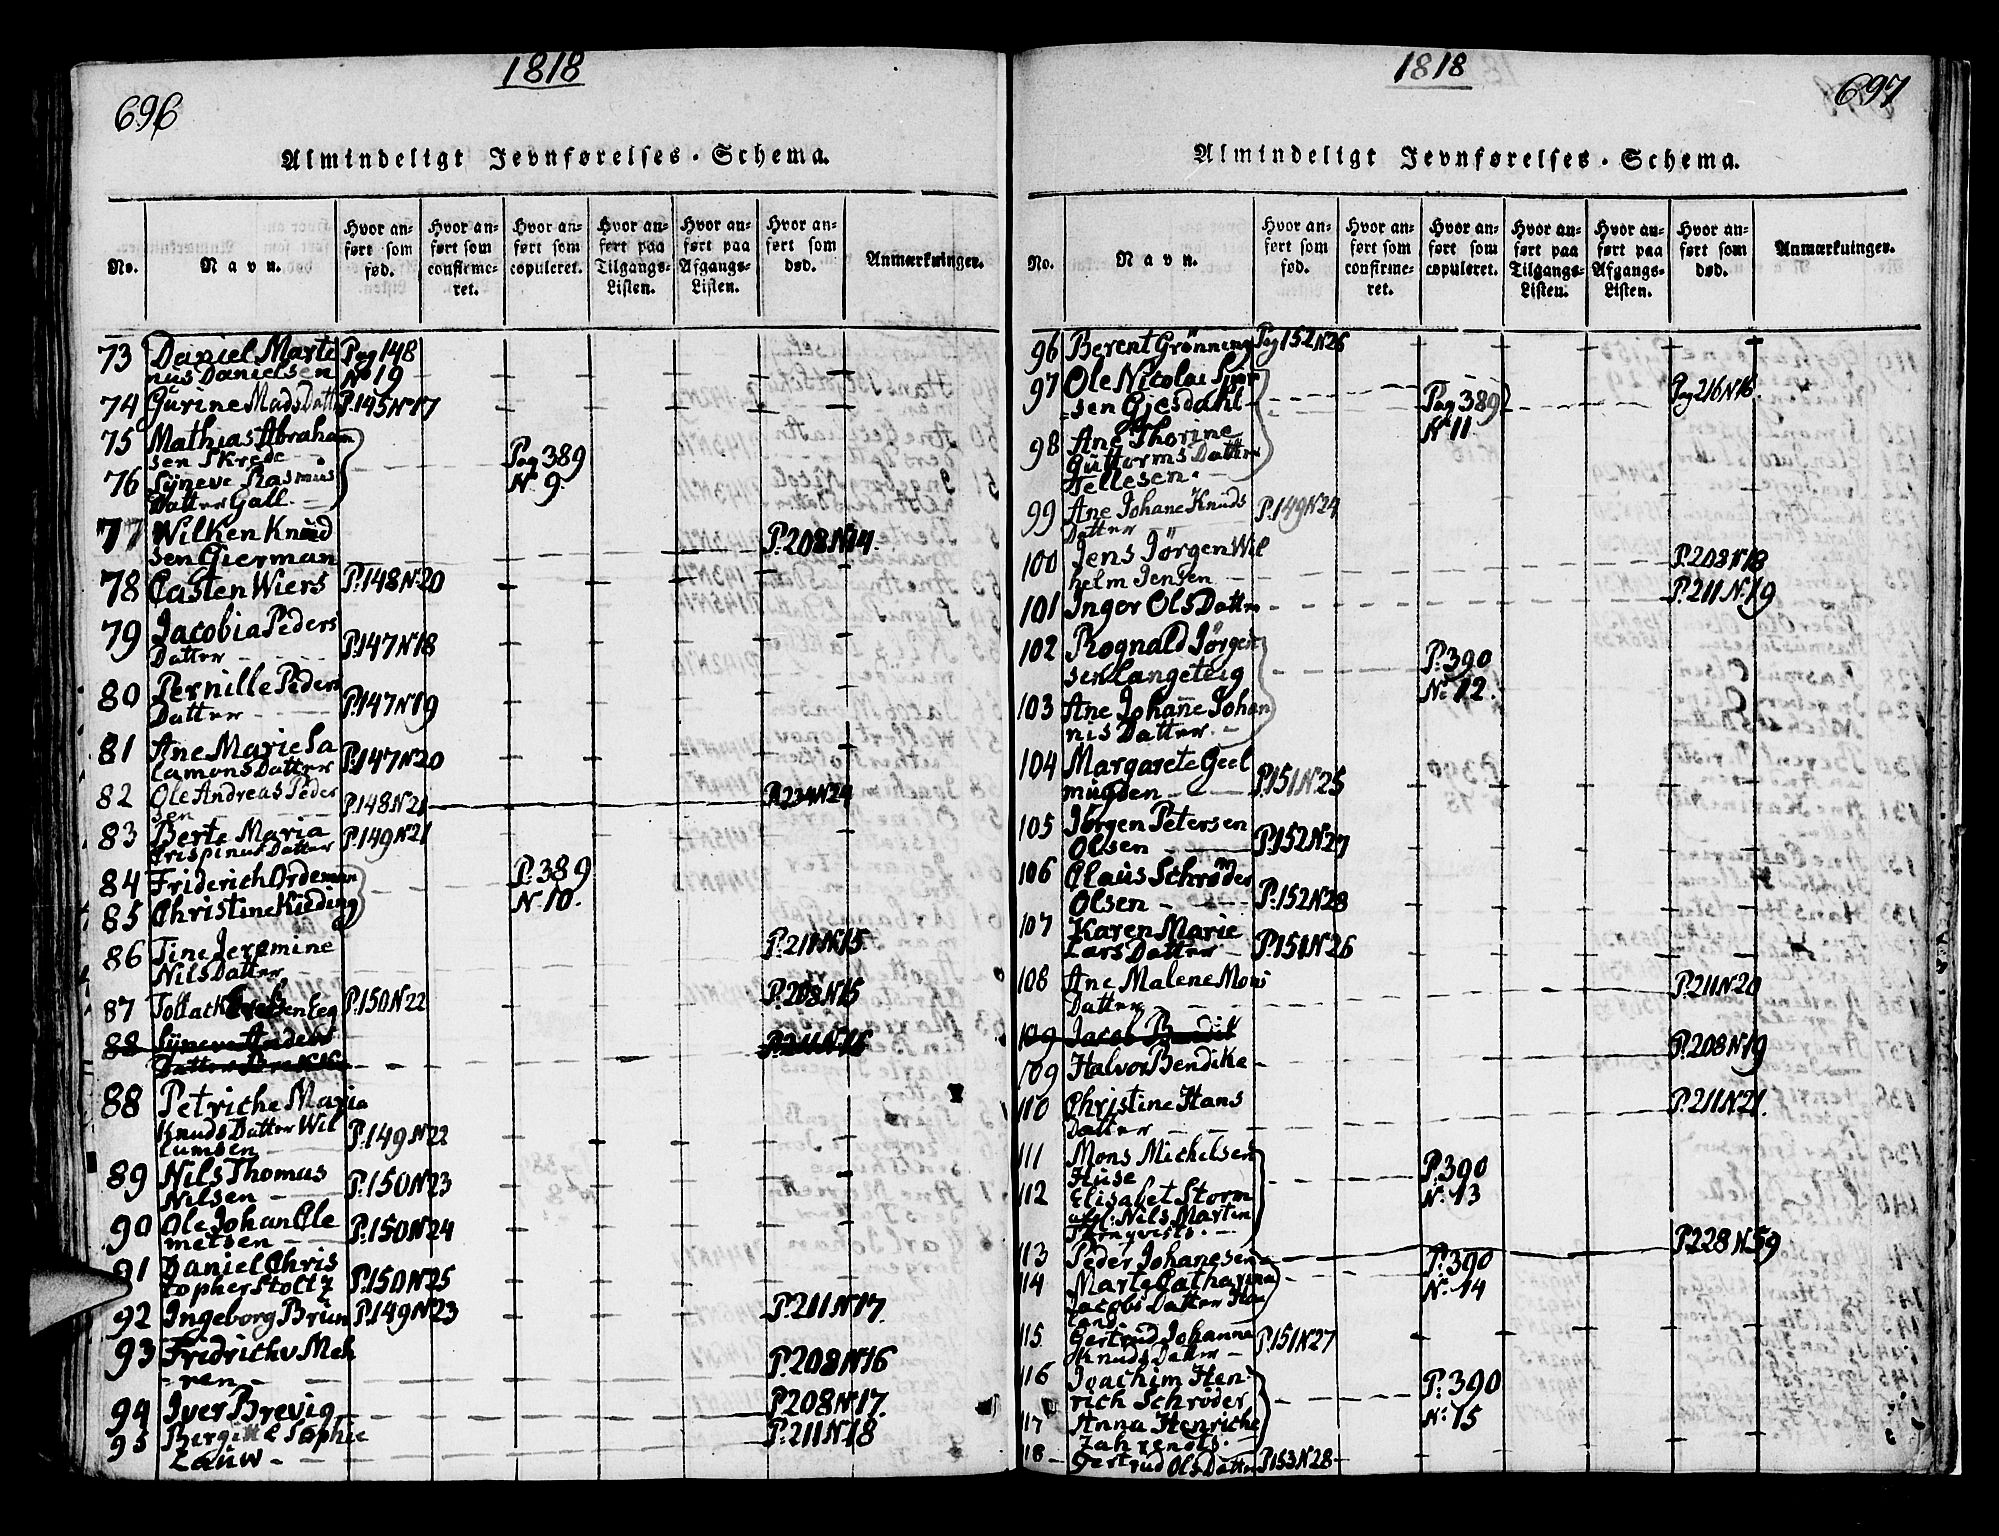 1818
696
Almindeligt Jevnførelses-Schema.
No.
Navn.
Hvor anført som fød.
Hvor anført som confirmeret.
Hvor anført som copuleret.
Hvor anført paa Tilgangs-Listen.
Hvor anført paa Afgangs-Listen.
Hvor anført som død.
Anmærkninger.
73 Daniel Marti Pag 148
nus Danielsen No 19
74 Gurine Mads Datt P.145 No 17
75 Mathias Abraham
sen Skrede Pag 389
76 Syneve Rasmus N. 9.
Datter Gall.
77 Wilken Knud
sen Gierman P.208 N 14.
78 Casten Wiers P.148 N.20
79 Jacobia Peders
Datter P.147 N 18
80 Pernille Peders
Datter P.147 N 19
81 Ane Marie Sa
lamons Datter P.147 N 20
82 Ole Andreas Peder
sen P.148 N 21 P.234 N 24
83 Berte Maria P.149 N 21
Crispinus Datter
84 Friderich Ordeman P.389
85 Christine Kieding N. 10.
86 Tine Jeremine P.211 N 15.
Nils Datter
87 Tollack P.150 N 22 P.208 N 15
88 Syneve Anders
Datter P.211 N 16
88 Petriche Maria
Knuds Datter Wil P.149 N 22
lumsen
89 Nils Thomas
Nilsen P.150 N 23
90 Ole Johan Cle
metsen P.150 N 24
91 Daniel Chris
topher Stoltz P.150 N 25
92 Ingeborg Brun P.149 N 23 P.211 N 17.
93 Fridrich v Meh
ren P.208 N 16
94 Iver Brevig P.208 N 17.
95 Bergitte Sophie P.211 N 18
Lauw
1818
697
Almindeligt Jevnførelses-Schema.
No.
Navn.
Hvor anført som fød.
Hvor anført som confirmeret.
Hvor anført som copuleret.
Hvor anført paa Tilgangs-Listen.
Hvor anført paa Afgangs-Listen.
Hvor anført som død.
Anmærkninger.
96 Berent Grönning Pag 152 N 26
97 Ole Nicolai
sen Gjesdahl Pag 389 Pag 216 N 16
98 Ane Thorine N 11.
Guttorms Datter
Tellesen.
99 Ane Johane Knuds P.149 N 24
Datter
100 Jens Jörgen Wil
helm Jensen P.208 N 18
101 Inger Ols Datter P.211 N. 19
102 Rognald Jörgen
sen Langeteig P.390
N. 12.
103 Ane Johanne Johan
nis Datter.
104 Margarete Geel
muyden P.151 N 25
105 Jörgen Petersen
Olsen P.152 N 27
106 Claus Schrøder
Olsen P.152 N 28
107 Karen Marie
Lars Datter P.151 N 26
108 Ane Malene Mons
Datter P.211 N 20
109 Jacob
109 Halvor Bendike P.208 N. 19
110 Christine Hans
Datter P.211 N 21.
111 Mons Michelsen
Huse P.390
112 Elisabet Storm N. 13
Nils Martin
113 Peder Johanesen P.228 N 59
114 Marte Catharina P.390
Jacobs Datter Hou N. 14
land
115. Gertrud Johanna P.151 N 27
Knuds Datter
116 Joachim Hen P. 390
rich Schröder
117 Anna Henriche N. 15
Zahrendts.
118 Gertrud Ols Datter P.153 N 28